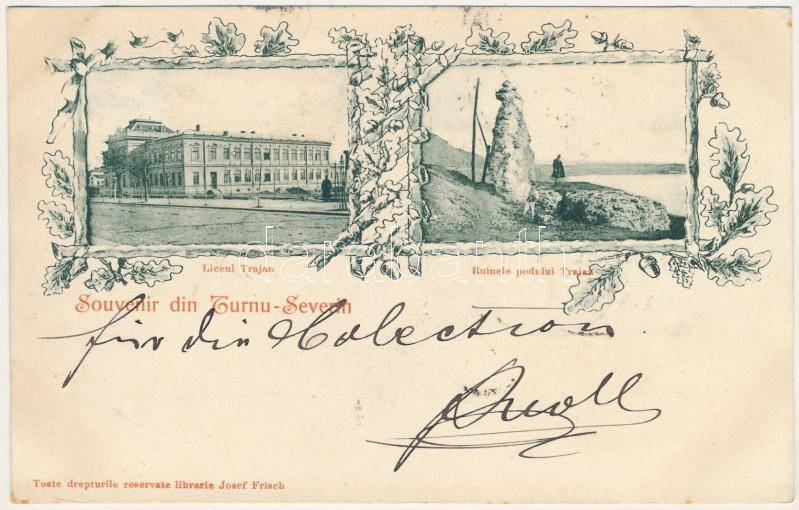 Liceul Trajan
Ruinele podului Traian
Souvenir din Turnu-Severin
für die Colection
Toate drepturile reservate librarie Josef Frisch
darabanth